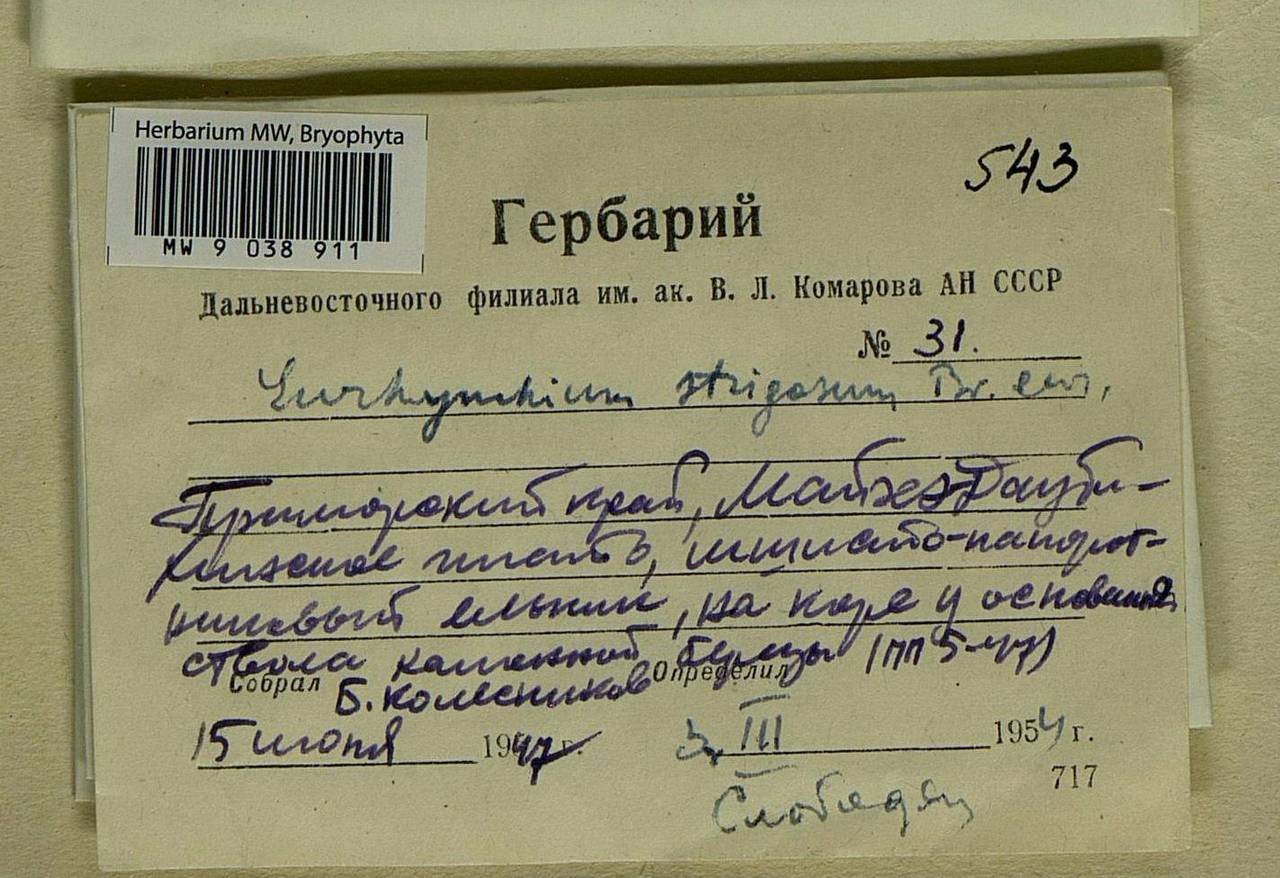 Herbarium MW, Bryophyta
MW 9 038 911
543
Гербарий
Дальневосточного филиала им. ак. В. Л. Комарова АН СССР
№ 31.
Eurhynchium strigosum Br. eur.
Приморский край, Майхэ-Дауби-
хинское плато, мшисто-папорот-
никовый ельник, на коре у основания
ствола каменной березы (ПП 5-47)
Собрал Б. Колесников Определил
15 июня 1947 г. 3. III 1954 г.
717